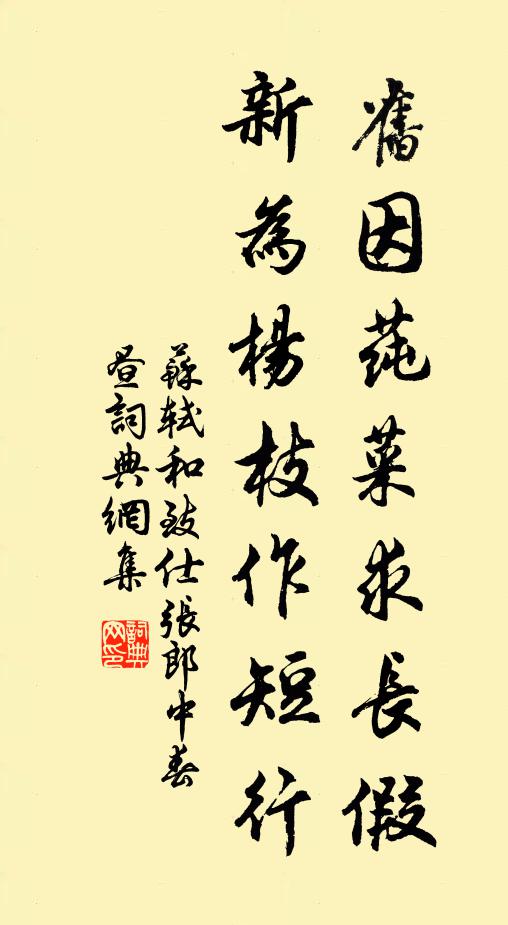 舊因蒓菜求長假
新為楊枝作短行
蘇軾和致仕張郎中春
晝詞典網集
詞典
网印